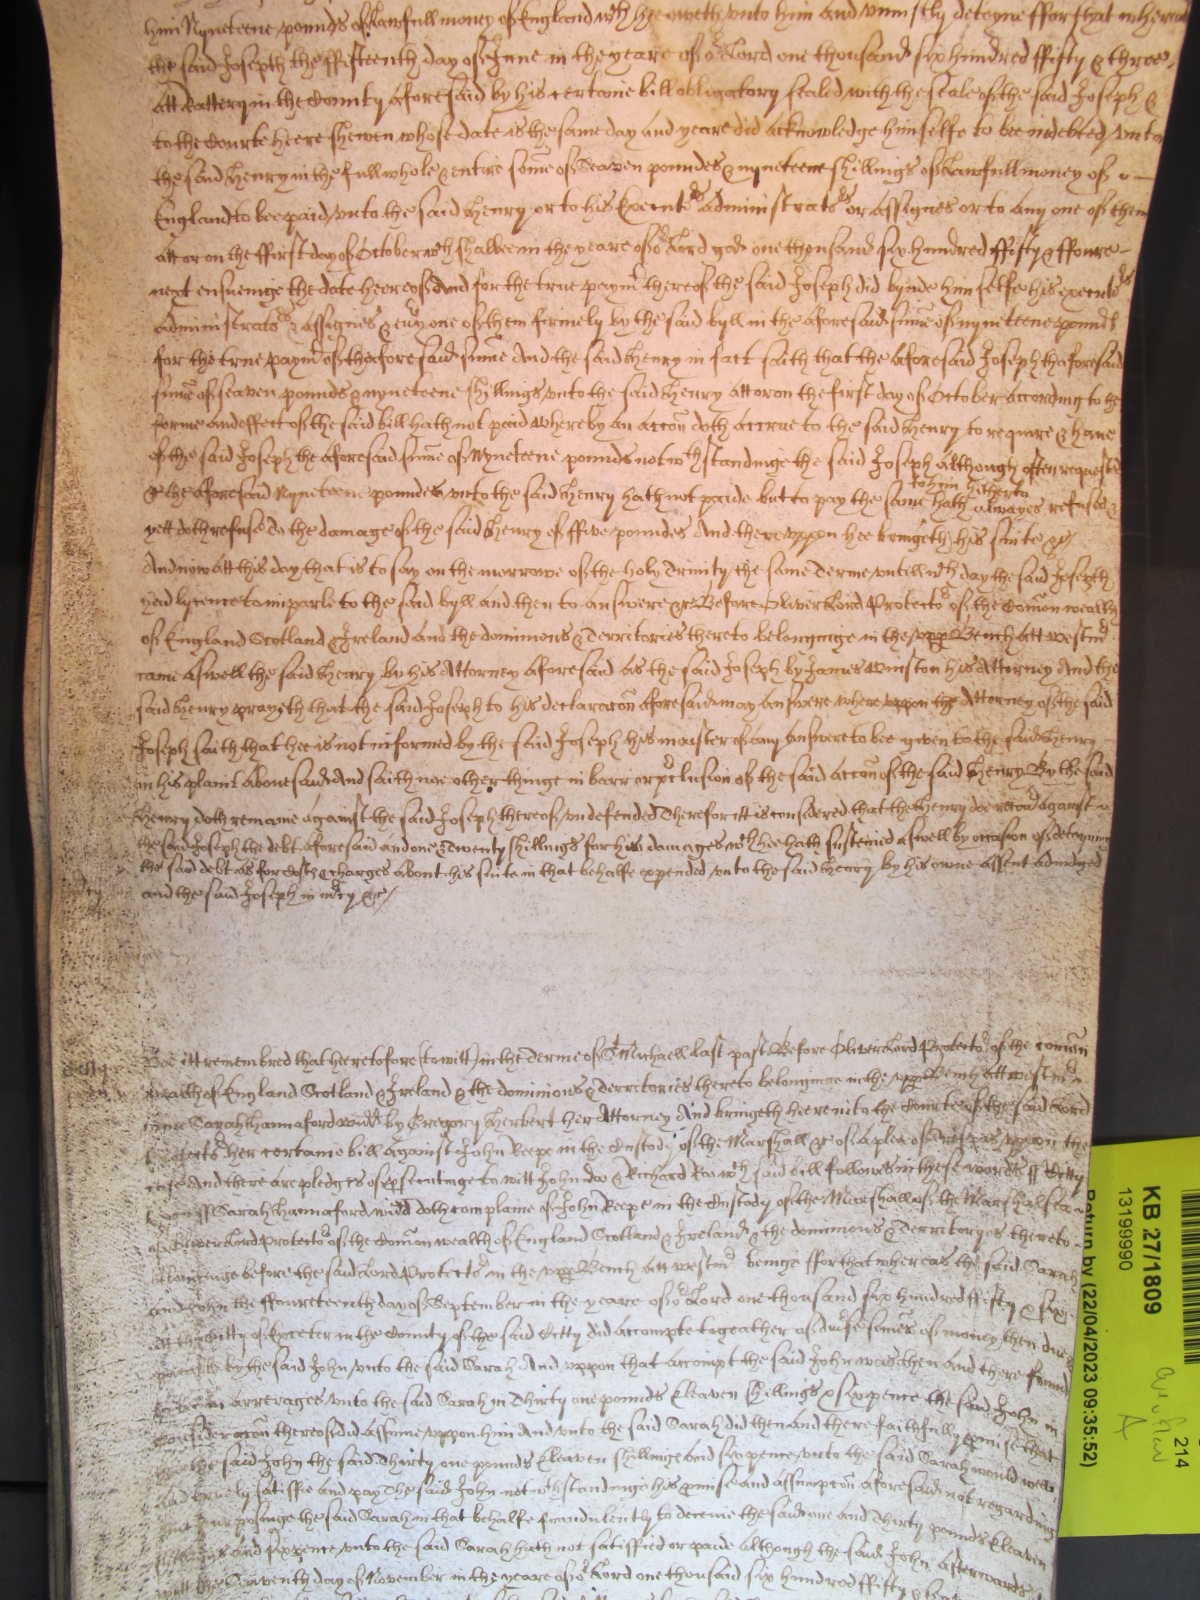 him Nyneteene pounds of Lawfull money of England wch hee oweth unto him and uniustly deteyneth ffor that whereas
the said Joseph the ffifteenth day of June in the yeare of or Lord one thousand six hundred ffifty & three
att in the County aforesaid by his certaine bill obligatory sealed with the seale of the said Joseph &
to the Courte heere shewen whose date is the same day and yeare did acknowledge himselfe to bee indebted unto
the said Henry in the full whole & entire some of Seaven poundes & nyneteene shillings of Lawfull money of
England to bee paid unto the said Henry or to his Executrs Administratrs or Assignes or to any one of them
att or on the ffirst day of October wch shalbee in the yeare of or Lord god one thousand six hundred ffifty & ffoure
next ensueinge the date heereof And for the true paymt thereof the said Joseph did bynde him selfe his executrs
Administratrs & assignes & evy one of them firmely by the said byll in the aforesaid sume of nyneteene pounds
for the true paymt of the aforesaid sume And the said Henry in fact saith that the aforesaid Joseph the aforesaid
sume of seaven pounds & nyneteene shillings unto the said Henry att or on the first day of October according to the
forme and effect of the said bill hath not paid whereby an accon doth accrue to the said Henry to require & have
of the said Joseph the aforesaid sume of Nyneteene pounds notwthstandinge the said Joseph although often requested
& the aforesaid Nyneteene poundes unto the said Henry hath not paide but to pay the same to him hitherto hath alwayes refused &
yett doth refuse To the damage of the said Henry of ffive poundes And thereuppon hee bringeth his suite &c
And now att this day that is to say on the morrowe of the holy Trinity the same Terme untill wch day the said Joseph
had lycence to imparle to the said byll and then to answere &c Before Oliver Lord Protector of the Comon wealth
of England Scotland & Ireland and the dominions & Territories thereto belonginge in the upp Bench att Westmr
came aswell the said Henry by his Attorney aforesaid as the said Joseph by James Winston his Attorney And the
said Henry prayeth that the said Joseph to his declaracon aforesaid may answere whereuppon the Attorney of the said
Joseph saith that hee is not informed by the said Joseph his maister of any answere to bee given to the said Henry
in his plaint abovesaid And saith noe other thinge in barr or pclusion of the said accon of the said Henry By the said
Henry doth remaine against the said Joseph thereof undefended Therefore itt is considered that the Henry doe recovr against
the said Joseph the debt aforesaid and one & twenty shillings for his damages wch hee hath susteined aswell by occasion of deteyning
the said debt as for Costs & charges about his suite in that behalfe expended unto the said Henry by his owne assent adiudged
and the said Joseph in mcy &c
Bee itt remembred that heeretofore (to witt) in the Terme of St Michaell last past Before Oliver Lord Protector of the comon
wealth of England Scotland & Ireland & the dominions & Territories thereto belonginge in the upp Bench att Westmr
came Sarah Hannaford widd by Gregory Herbert her Attorney And bringeth heere into the Courte of the said Lord
Protector her certaine bill against John Reepe in the Custody of the Marshall &c of a plea of trespas uppon the
case And there are pledges of psecutinge to witt John doe & Richard Roe wch said bill followes in these words ss Citty
Exon ss Sarah Hannaford widd doth complaine of John Reepe in the Custody of the Marshall of the Marshalsea
of Oliver Lord Protector of the Comon wealth of England Scotland & Ireland & the dominions & Territoryes thereto
belonginge before the said Lord Protector in the upp Bench att Westmr beinge ffor that whereas the said Sarah
and John the ffoureteenth day of September in the yeare of or Lord one thousand six hundred ffifty & six
att the Citty of Exceter in the County of the said Citty did accompte togeather of divse somes of money then due &
by the said John unto the said Sarah And uppon that accompt the said John was then and there found
to bee in arrerages unto the said Sarah in Thirty one pounds Eleaven shillings & sixpence the said John in
consideracon thereof did assume uppon him And unto the said Sarah did then and there faithfully pmise that
the said John the said Thirty one pounds Eleaven shillings and sixpence unto the said Sarah would well
and truely satisfie and pay The said John notwthstandinge his pmise and assumpcon aforesaid not regarding
the said Sarah in that behalfe fraudulently to deceive the said one and Thirty pounds Eleaven
shillings and sixpence unto the said Sarah hath not satisfied or paide although the said John afterwards
witt the Seaventh day of November in the yeare of or Lord one thousand six hundred ffifty &
KB 27/1809
13199990
Return by (22/04/2023 09:35:52)
214